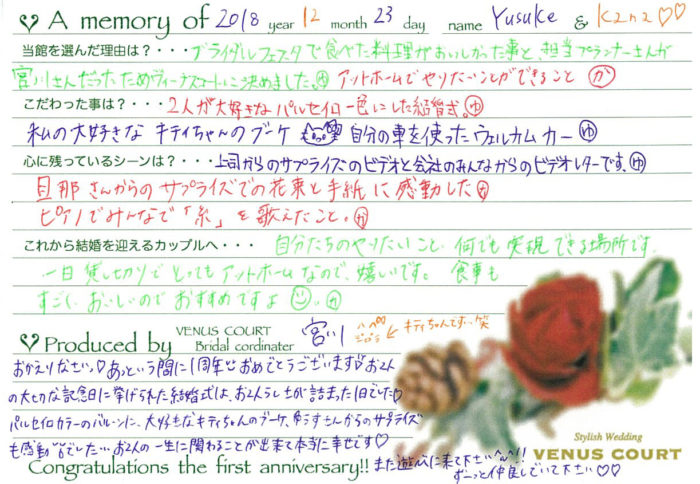 A memory of 2018 year 12 month 23 day name Yusuke & Kana♡♡
当館を選んだ理由は？・・・ブライダルフェスタで食べた料理がおいしかった事と、担当プランナーさんが
宮川さんだったためヴィーナスコートに決めました。ゆ アットホームでやりたいことができること か
こだわった事は？・・・2人が大好きなパルセイロ一色にした結婚式。ゆ
私の大好きなキティちゃんのブーケ 自分の車を使ったウェルカムカー ゆ
心に残っているシーンは？・・・上司からのサプライズのビデオと会社のみんなからのビデオレターです。ゆ
旦那さんからのサプライズでの花束と手紙に感動した か
ピアノでみんなで「糸」を歌えたこと。か
これから結婚を迎えるカップルへ・・・ 自分たちのやりたいこと 何でも実現できる場所です。
一日貸し切りでとってもアットホームなので、嬉しいです。 食事も
すごくおいしいのでおすすめですよ か
Produced by VENUS COURT Bridal cordinater 宮川 ← キティちゃんです…笑
おかえりなさい♡あっという間に1周年!!おめでとうございます♡お2人
の大切な記念日に挙げられた結婚式は、お2人らしさが詰まった1日でした♡
パルセイロカラーのバルーンに、大好きなキティちゃんのブーケ、ゆうすけさんからのサプライズ
も感動でした… お2人の一生に関わることが出来て本当に幸せです♡
Congratulations the first anniversary!! また遊びに来て下さい^^!!
ずーっと仲良しでいて下さい♡♡
Stylish Wedding
VENUS COURT